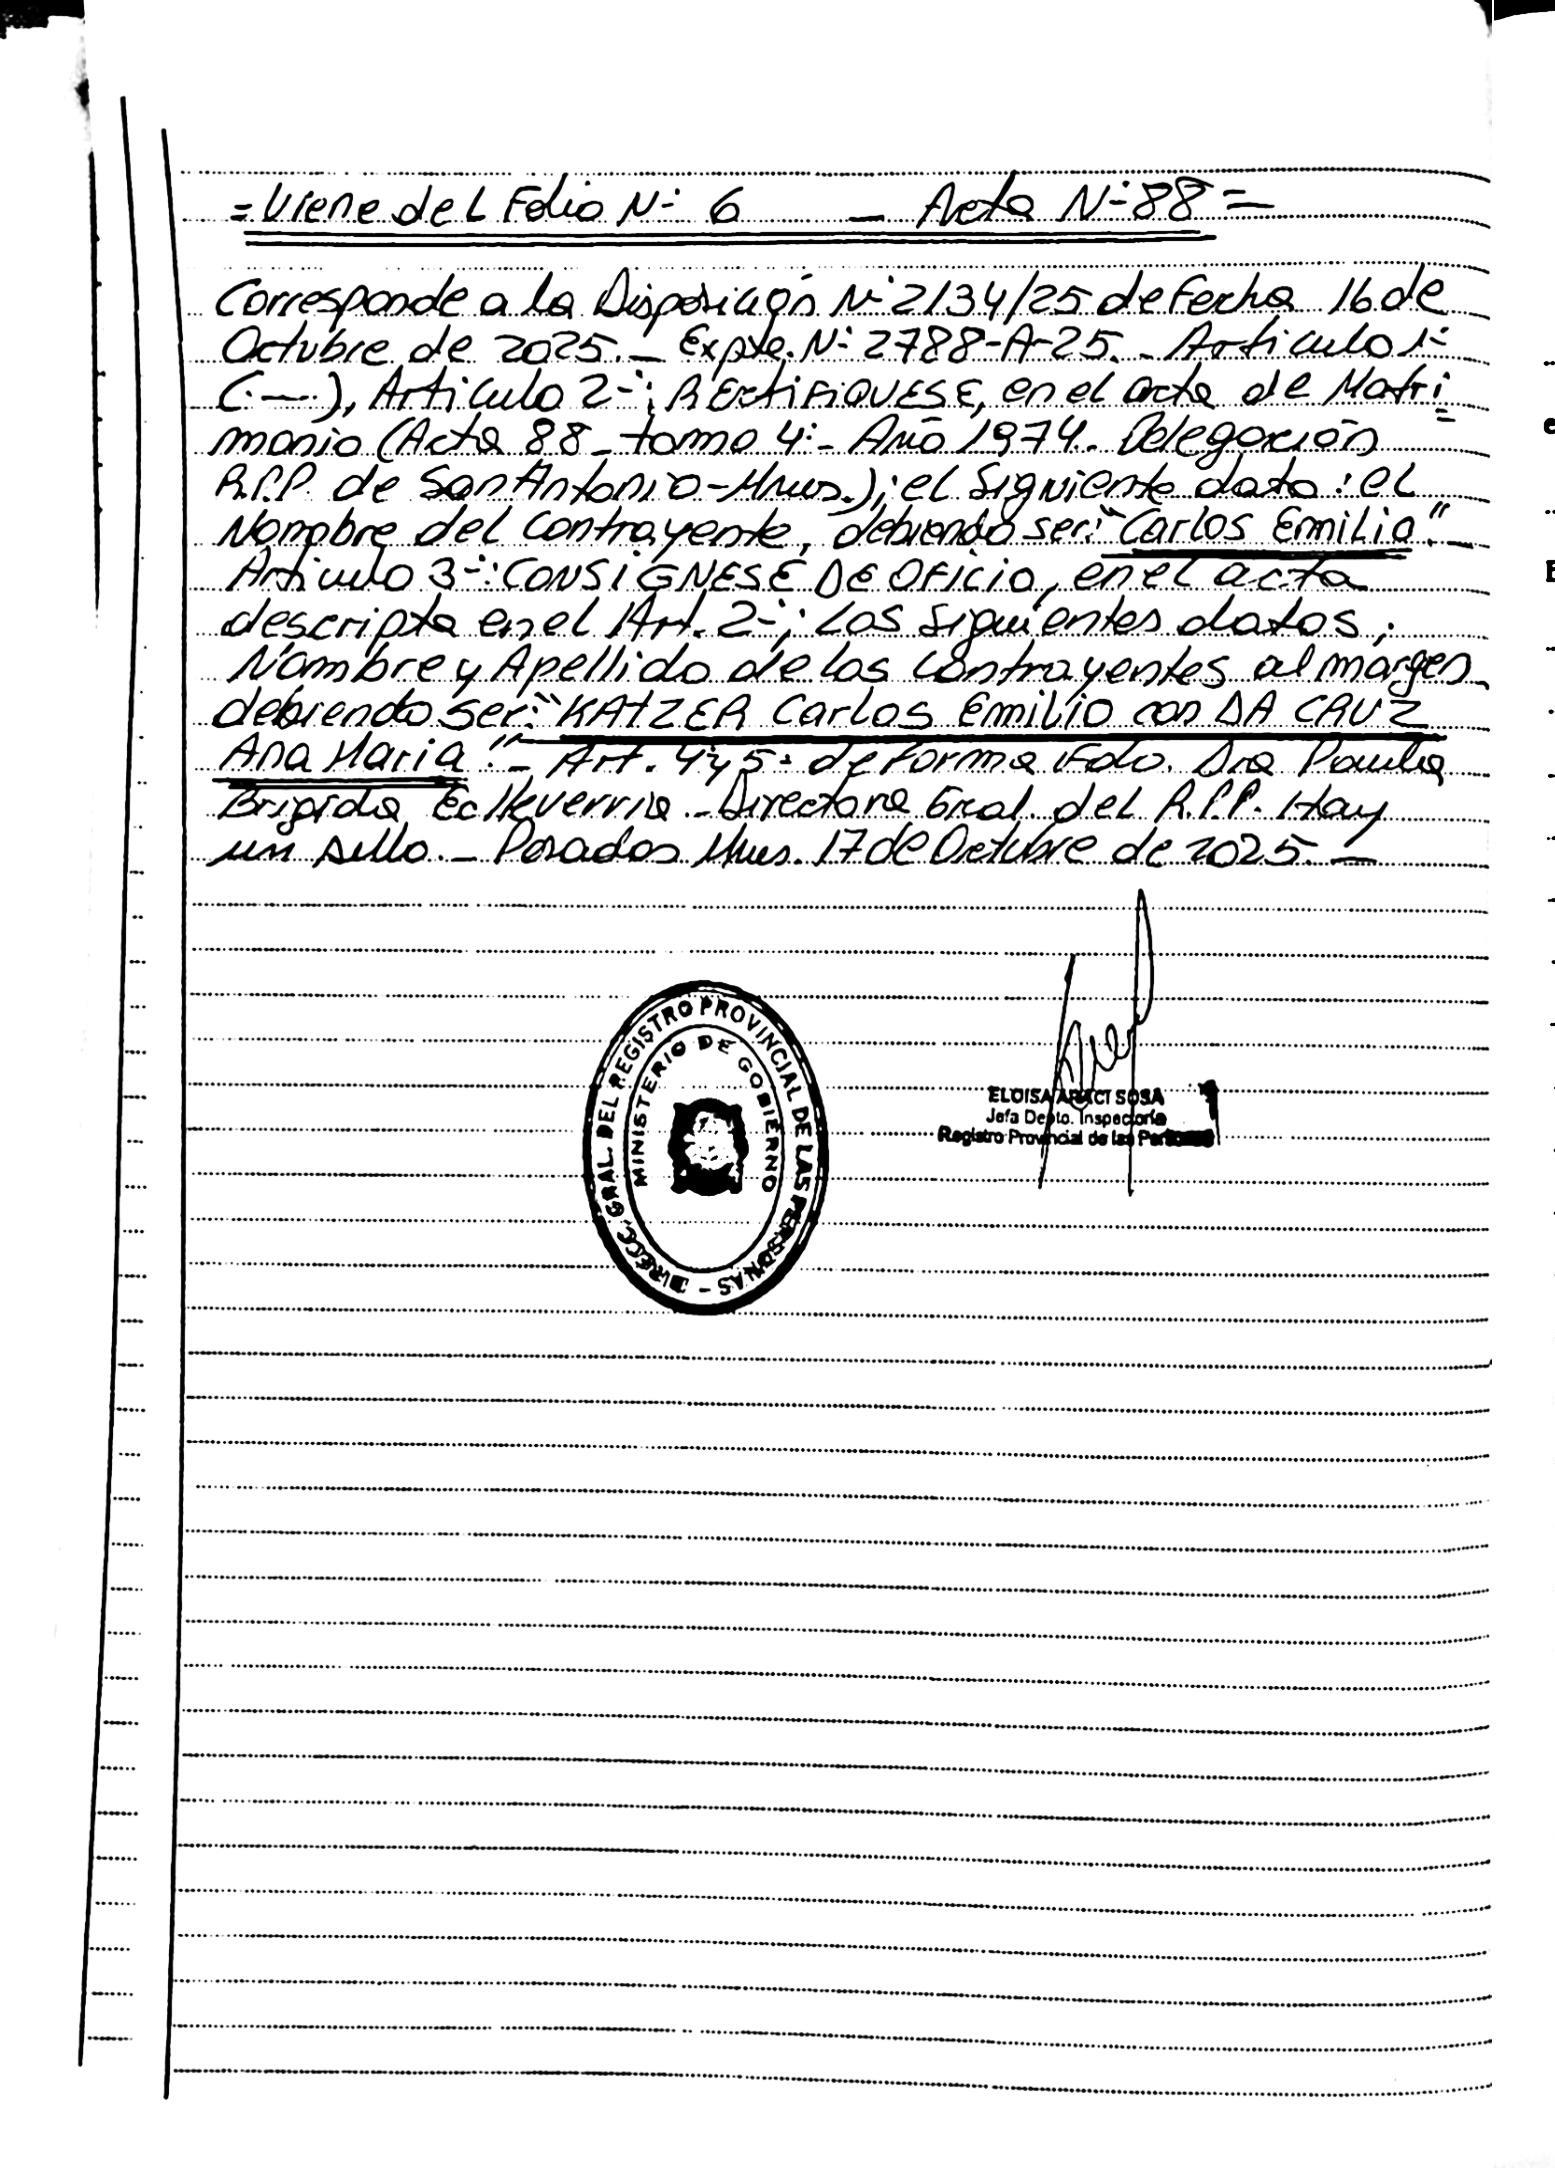 = Viene del Folio N° 6 _ Acta N° 88 =
Corresponde a la Disposición N° 2134/25 de Fecha 16 de
Octubre de 2025._ Expte. N° 2788-A-25._ Articulo 1°
(.—.), Articulo 2°: RECTIFIQUESE, en el acta de Matri=
monio (Acta 88 - tomo 4° - Año 1974. Delegación
R.P.P. de San Antonio-Mnes.); el siguiente dato: el
Nombre del contrayente, debiendo ser: "Carlos Emilio"._
Articulo 3°: CONSIGNESE DE OFICIO, en el acta
descripta en el Art. 2°; Los siguientes datos;
Nombre y Apellido de los contrayentes al margen
debiendo ser: "KATZER Carlos Emilio con DA CRUZ
Ana Maria"._ Art. 4 y 5: de Forma Fdo. Dra
Brigida Echeverria._ Directora Gral. del R.P.P. Hay
un sello._ Posadas Mnes. 17 de Octubre de 2025._
DIRECC. GRAL. DEL REGISTRO PROVINCIAL DE LAS PERSONAS -
MINISTERIO DE GOBIERNO
ELOISA ARACI SOSA
Jefa Depto. Inspectoría
Registro Provincial de las Personas